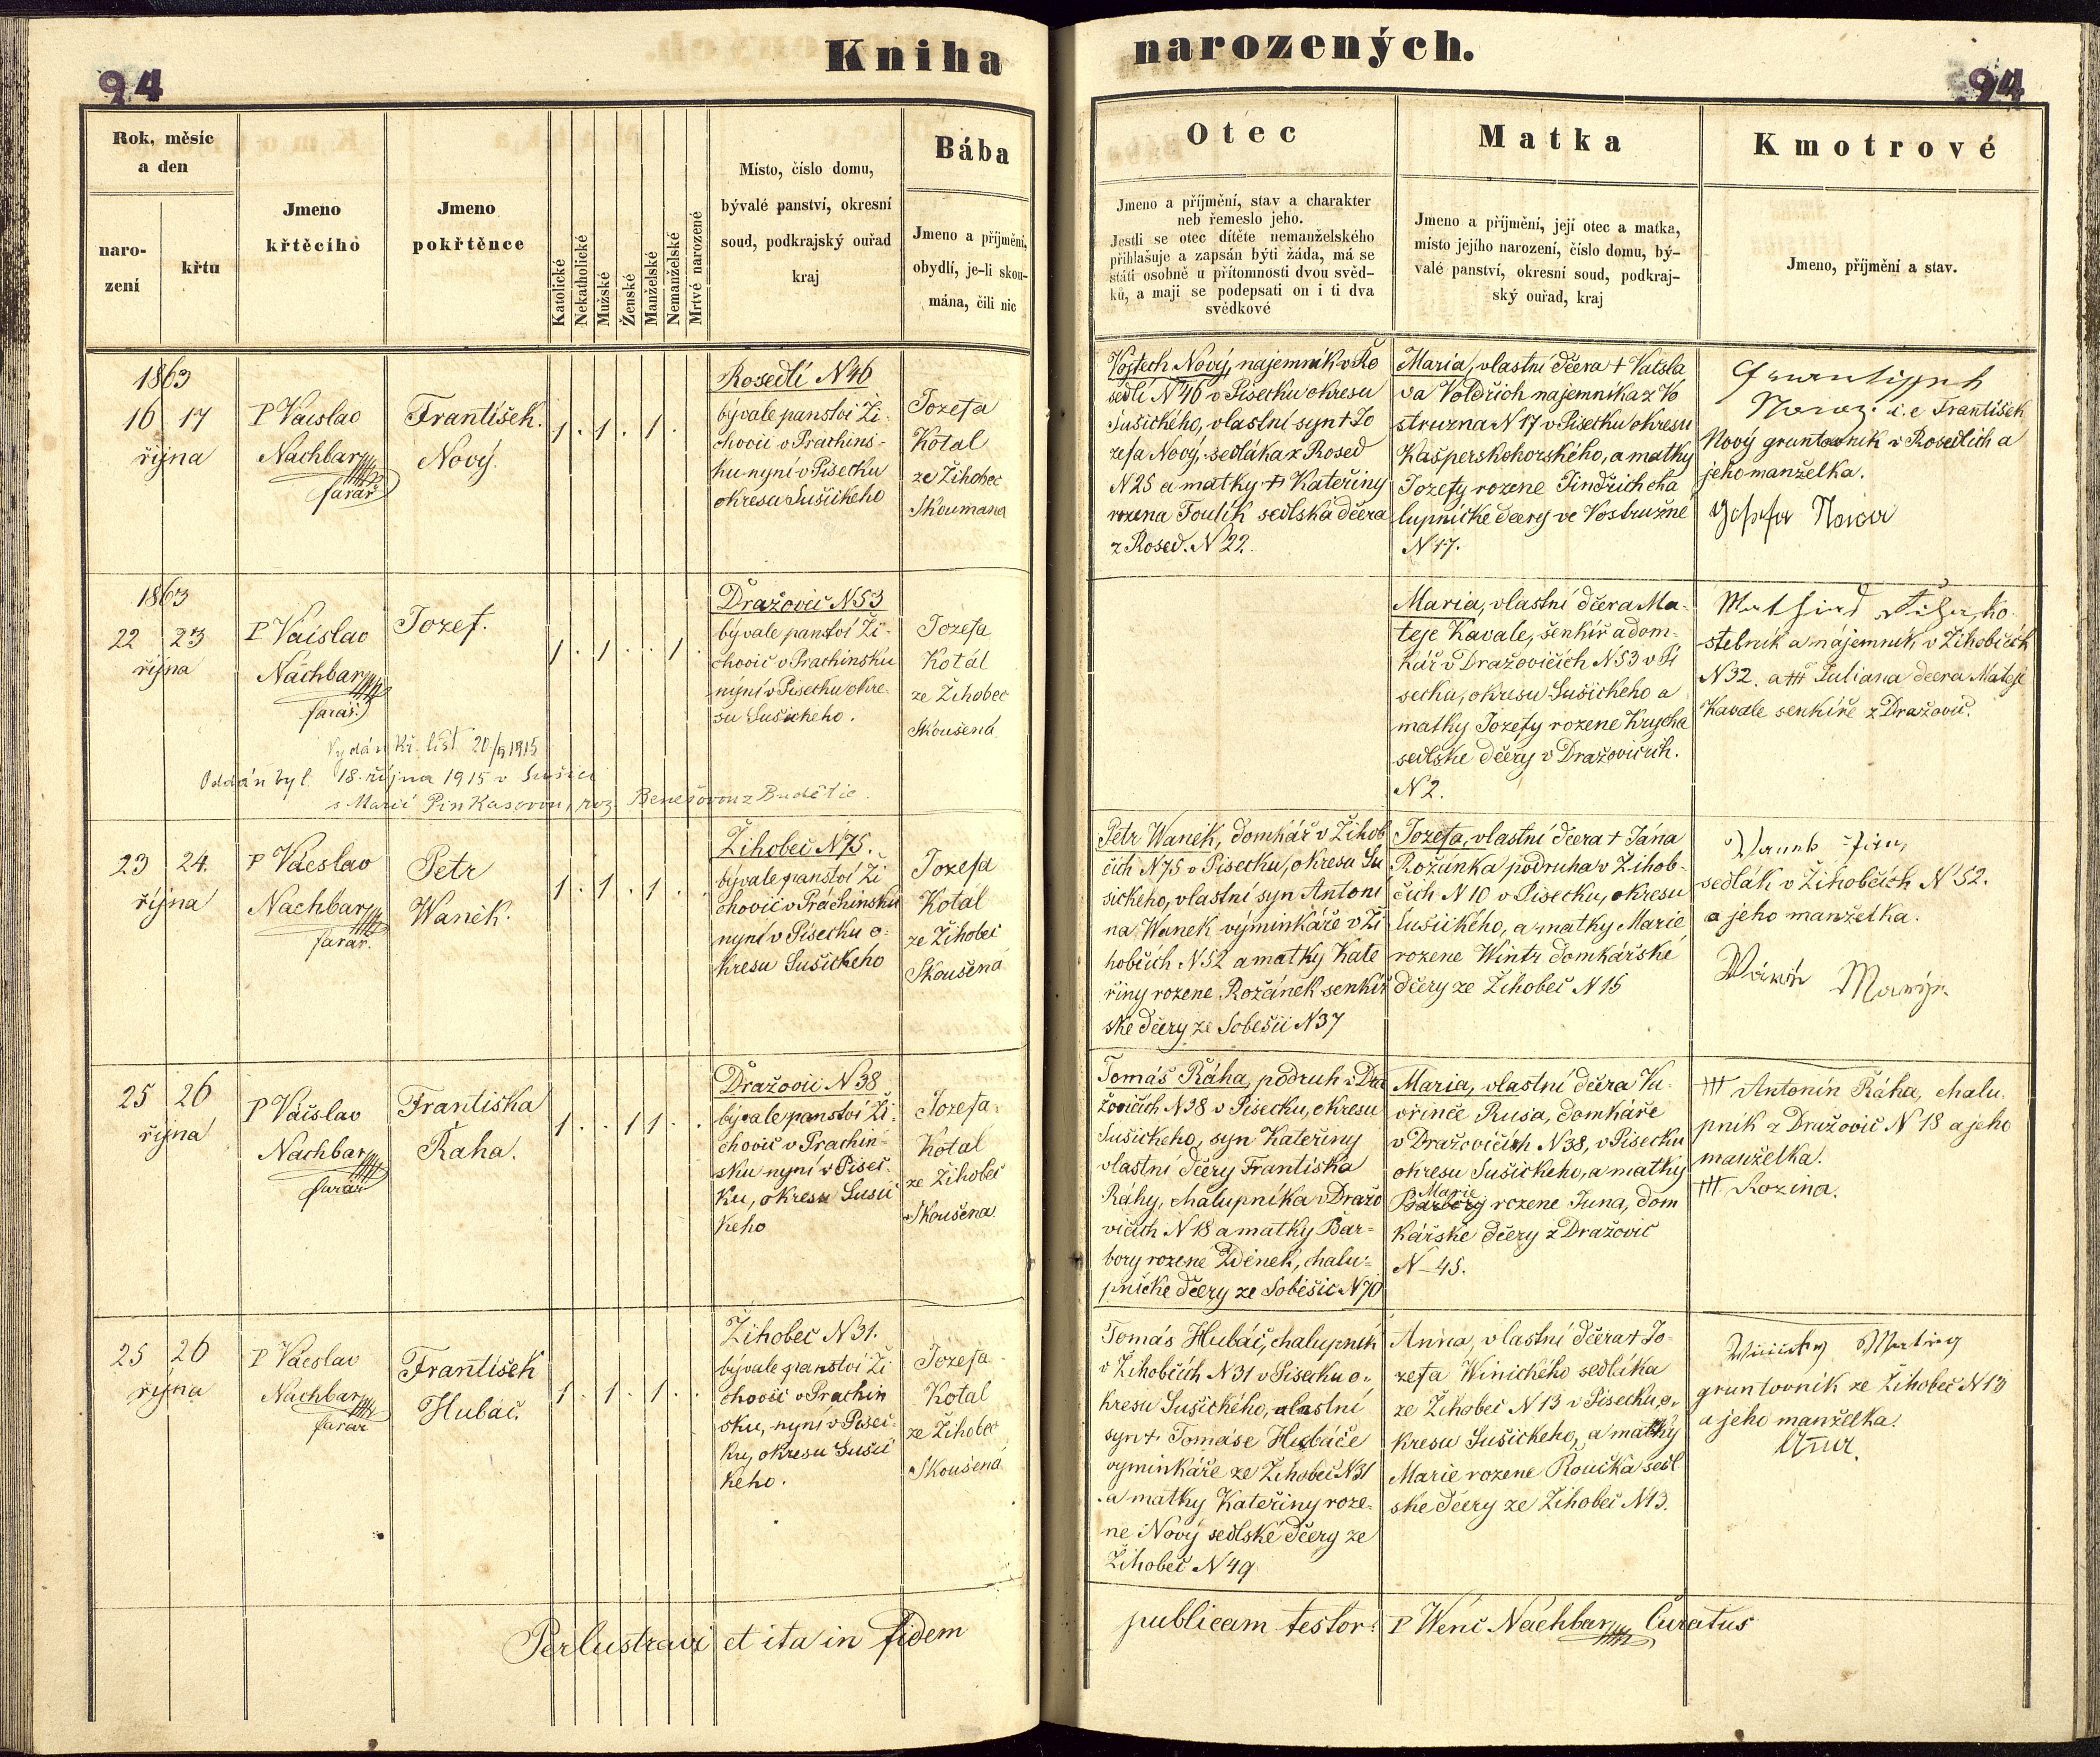 Kniha narozených.
94
94
Rok, měsíc
a den
naro-
zení
křtu
Jmeno
křtěcího
Jmeno
pokřtěnce
Katolické
Nekatholické
Mužské
Ženské
Manželské
Nemanželské
Mrtvě narozené
Místo, číslo domu,
bývalé panství, okresní
soud, podkrajský ouřad
kraj
Bába
Jmeno a příjmění,
obydlí, je-li skou-
mána, čili nic
Otec
Jmeno a příjmění, stav a charakter
neb řemeslo jeho.
Jestli se otec dítěte nemanželského
přihlašuje a zapsán býti žádá, má se
státi osobně u přítomnosti dvou svěd-
ků, a mají se podepsati on i ti dva
svědkové
Matka
Jmeno a příjmění, její otec a matka,
místo jejího narození, číslo domu, bý-
valé panství, okresní soud, podkraj-
ský ouřad, kraj
Kmotrové
Jmeno, příjmění a stav.
1863
16 17
října
P Václav
Nachbar
farář
František
Nový.
1 . 1 . 1 .
Rosedlí N46
bývale panství Ži-
chovic v Prachins-
ku nyní v Písecku
okresu Sušického
Jozefa
Kotal
ze Žihobec
Skoumana
Vojtech Nový, najemník v Ro
sedlí N46 v Písecku okresu
Sušického, vlastní syn + Jo
zefa Nový, sedláka z Rosed
N25 a matky + Kateřiny
rozena Toulík sedlská dčera
z Rosed. N22.
Maria, vlastní dčera + Vácsla
va Voldřich najemníka z Vo
struzna N17 v Písecku okresu
Kašperskohorského, a matky
Jozefy rozene Jindřich cha
lupnické dcery ve Vostružné
N17.
i.e František
Nový gruntovník v Rosedlích a
jeho manželka.
Josefa
1863
22 23
října
P Václav
Nachbar
farář
Jozef.
1 . 1 . . 1 .
Dražovic N53
bývale panství Ži-
chovic v Prachinsku
nýní v Písecku okre-
su Sušického.
Jozefa
Kotál
ze Žihobec
Skoušená
Maria, vlastní dčera Ma-
teje Kavale, šenkíř a dom-
kář v Dražovičích N53 v Pí
secku, okresu Sušického a
matky Jozefy rozene Krycha
sedlske dčery v Dražovicích.
N2.
stelník a nájemník, v Žihobčích
N32. a ††† Juliana dcera Mateje
Kavale senkíře z Dražovic.
Vydán kř. list 20/9 1915
Oddán byl 18. října 1915 v Sušici
s Marií Pinkasovou, roz. Benešovou z Budětic.
23 24.
října
P Václav
Nachbar
farář.
Petr
Wanèk.
1 . 1 . 1 . .
Žihobeč N75.
bývale panství Ži
chovic v Prachinsku
nyní v Písecku o-
kresu Sušického
Jozefa
Kotál
ze Žihobeč
Skoušená
Petr Wanèk, domkář v Žihob
čích N75 v Písecku, okresu Su
sického, vlastní syn Antoni
na Wanek výminkáře v Ži
hobčích N52 a matky Kate
řiny rozene Rožánek senkíř
ske dčery ze Sobešic N37
Jozefa, vlastní dcera + Jána
Rožánka podruha v Žihob-
čích N10 v Písecku, okresu
Sušického, a matky Marie
rozene Wintr domkářské
dčery ze Žihobeč N15
sedlák v Žihobčích N52.
a jeho manželka.
25 26
října
P Václav
Nachbar
farář
Frantiska
Řaha.
1 . . 1 1 . .
Dražovic N38
bývale panství Ži-
chovic v Prachin-
sku nyní v Píseč-
ku, okresu Susic
keho
Jozefa
Kotal
ze Žihobeč
Skoušena
Tomáš Řáha, podruh v Dra
žovičích N38 v Písecku, okresu
Sušického, syn Kateřiny
vlastní dčery Frantiska
Ráhy, chalupníka v Dražo
vičích N18 a matky Bar-
bory rozene Zdenek, chalu-
pnické dčery ze Soběšic N70
Maria, vlastní dčera Va-
vřince Rusa, domkáře
v Dražovičích N38, v Písecku
okresu Sušickeho, a matky
Marie
Barbory rozene Juna, dom
kářske dčery z Dražovic
N 45.
††† Antonín Řáha, chalu-
pník z Dražovic N18 a jeho
manželka.
††† Rozina.
25 26
října
P Václav
Nachbar
farář
František
Hubač.
1 . 1 . 1 . .
Žihobeč N31.
bývale panství Ži
chovic v Prachin
sku, nyní v Píseč-
ku, okresu Susic
keho.
Jozefa
Kotal
ze Žihobeč
Skoušená
Tomás Hubáč, chalupník
v Žihobčích N31 v Písecku o-
kresu Sušického, vlastní
syn + Tomáse Hubáče
vyminkáře ze Žihobeč N31
a matky Kateřiny roze-
ne Nový sedlské dčery ze
Žihobeč N49
Anna, vlastní dčera + Jo-
zefa Winického sedláka
ze Žihobec N13 v Písecku, o-
kresu Sušickeho, a matky
Marie rozene Roučka sedl
ske dčery ze Žihobeč N13.
gruntovník ze Žihobeč N13
a jeho manželka.
Perlustravi et ita in fidem publicam testor. P Wenc Nachbar Curatus